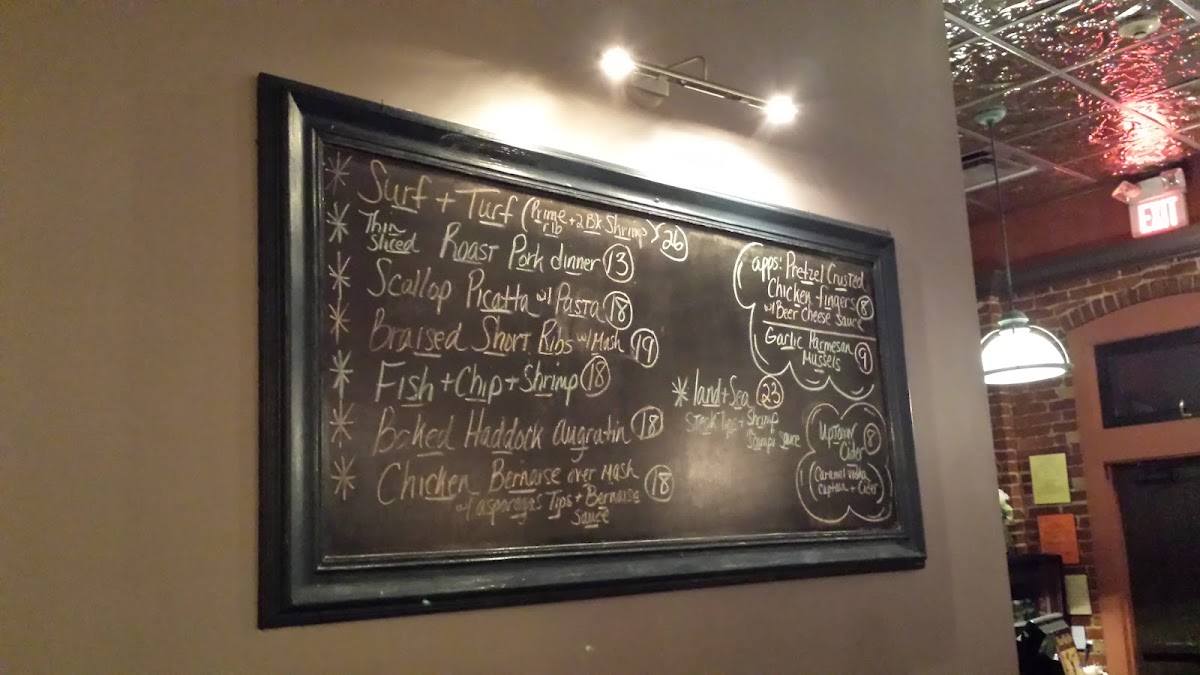 * Surf + Turf (Prime rib + 2 Bk Shrimp) 26
* Thin Sliced Roast Pork dinner 13
* Scallop Picatta w/ Pasta 18
* Braised Short Ribs w/ Mash 19
* Fish + Chip + Shrimp 18
* Baked Haddock augratin 18
* Chicken Bernaise over Mash 18
w/ asparagus Tips + Bernaise
Sauce
apps: Pretzel Crusted
Chicken fingers 8
w/ Beer cheese sauce
Garlic Parmesan
Mussels 9
* land + Sea 23
Steak Tips + Shrimp
Scampi Sauce
Uptown
Cider 8
(Caramel vodka
Captain + Cider)
EXIT